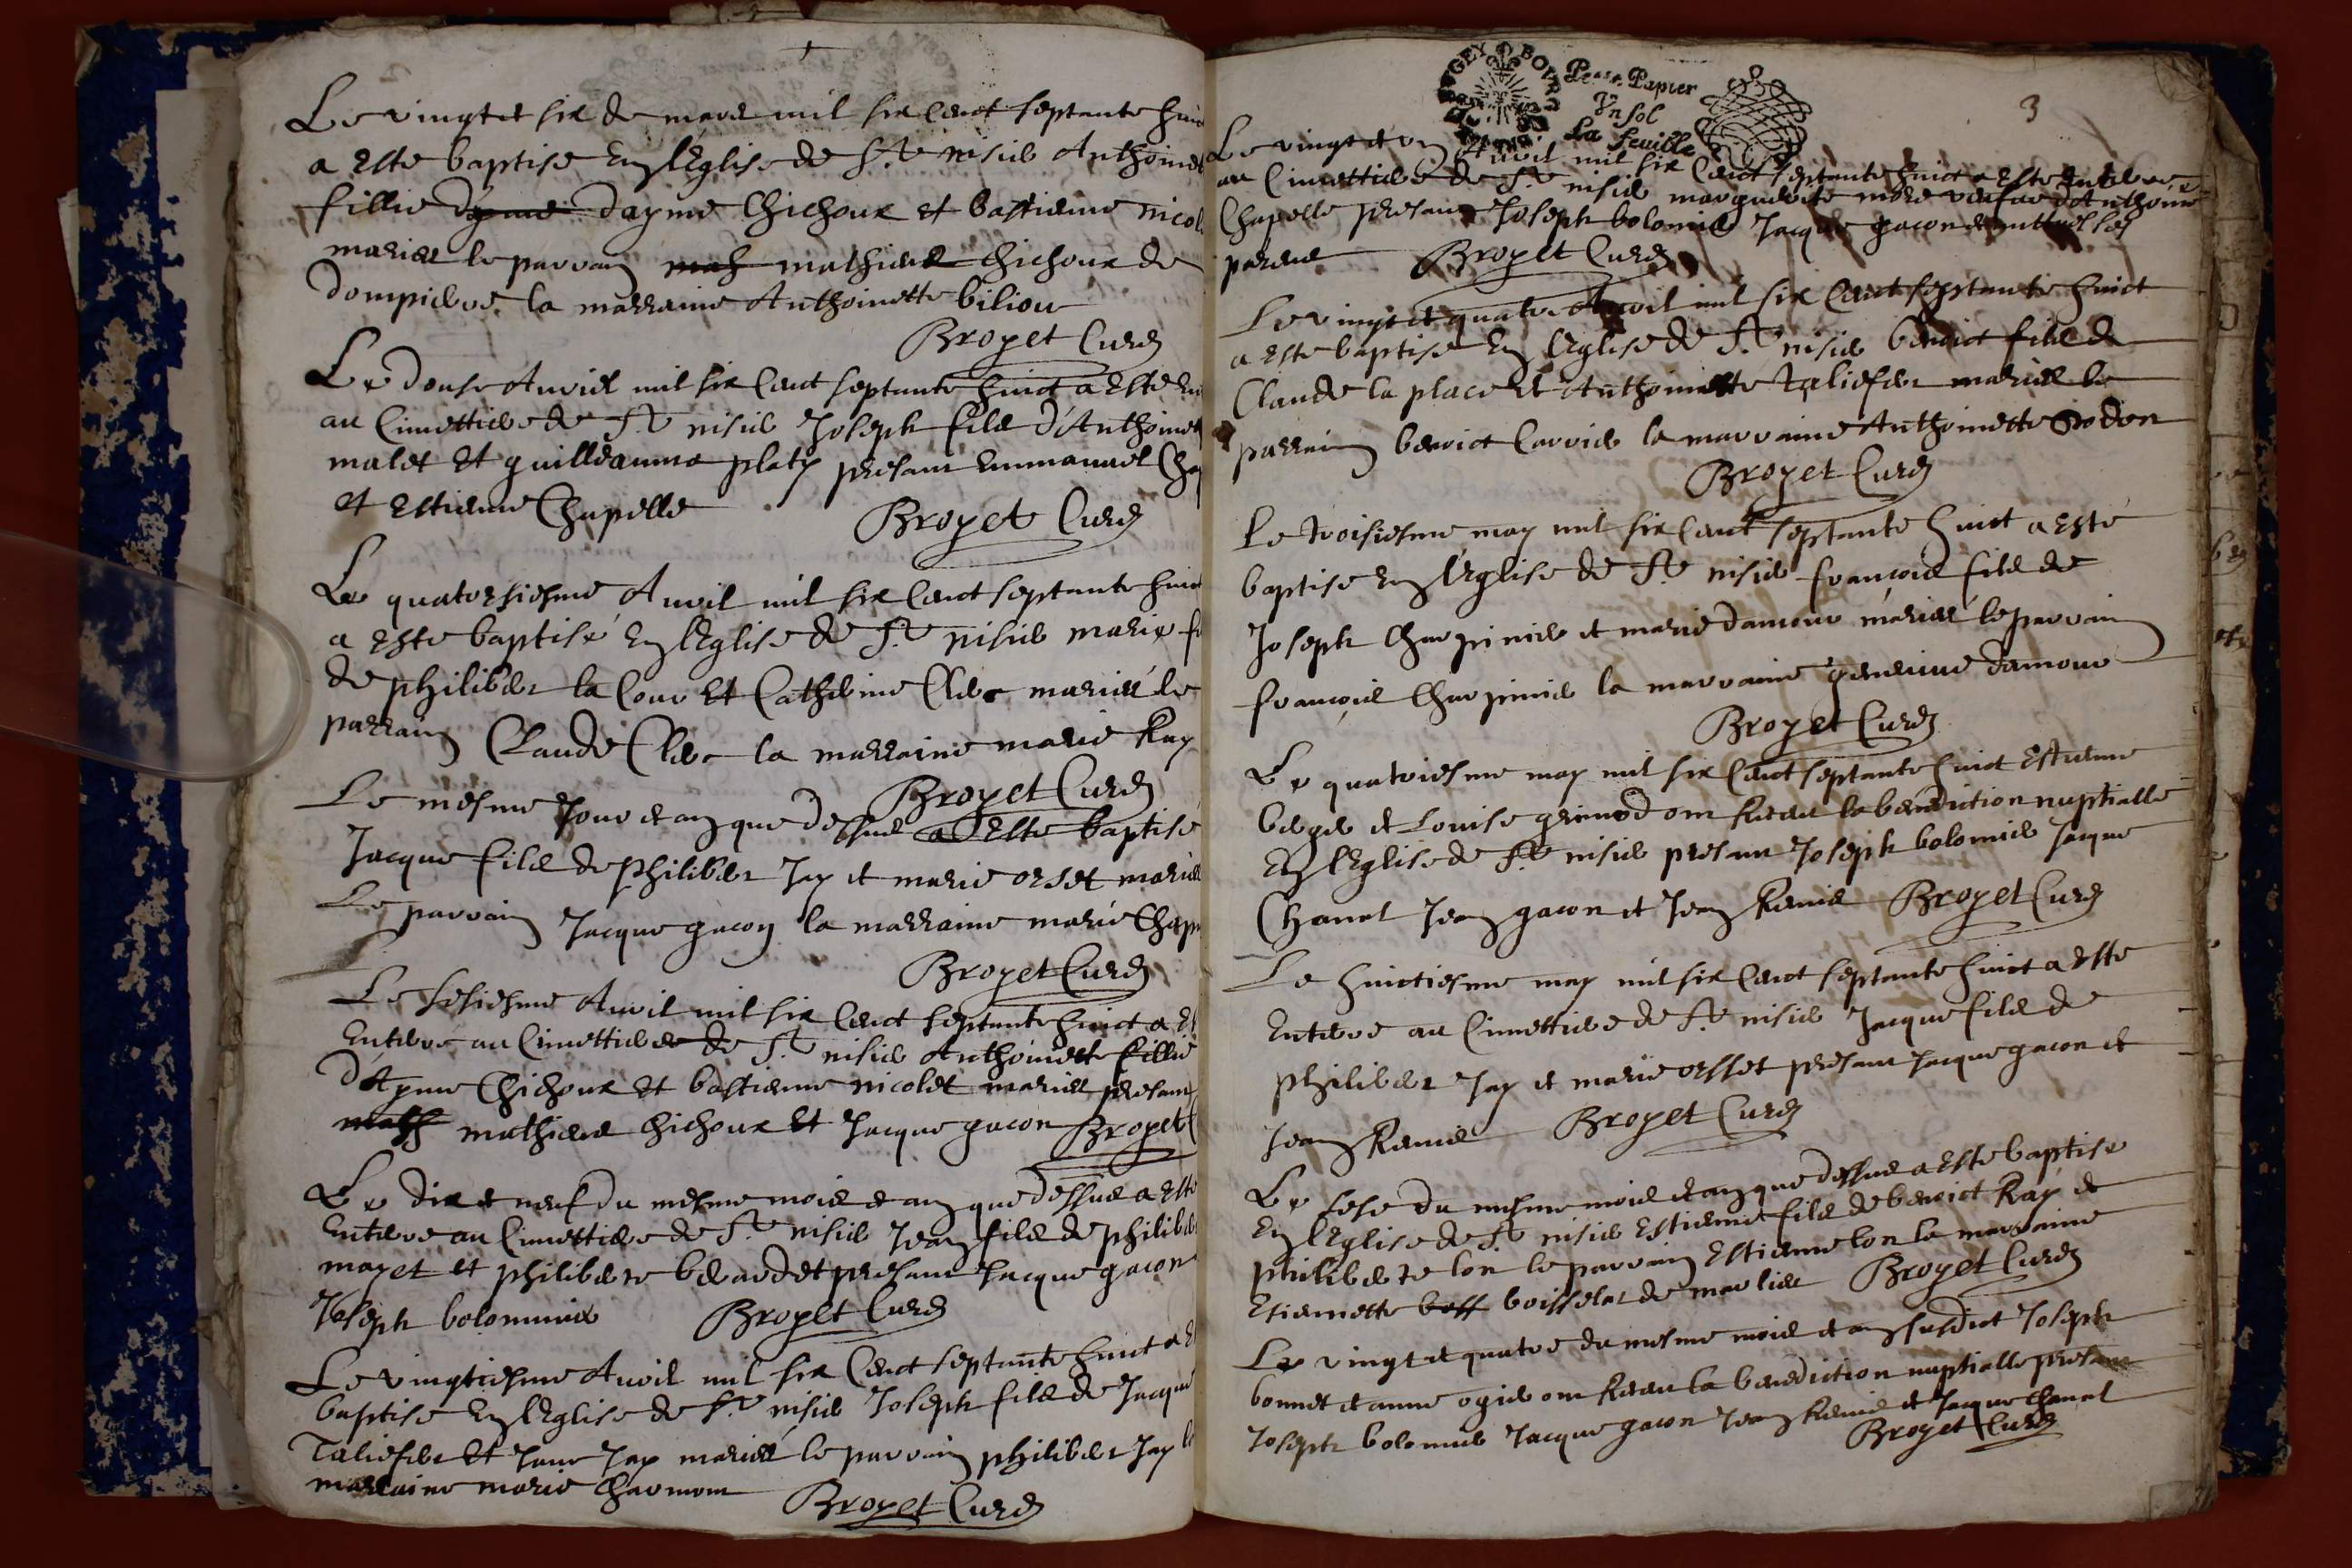 Le vingt et six de mars mil six cent septante huict
a este baptise en l'Eglise de St nisie Anthoinet
fillie dayme dayme Chichoux et bastienne nicol
mariez le parrain math mathieu Chichoux de
dompierre la marraine Anthoinette biliou
Broyet Curé
Le douse Auvril mil six cent septante huict a este en
au Cimettiere de St nisie Joseph fils d'Anthoine
malet et guilleaume platy presant Emmanuel Cha
et Estienne Chapelle
Broyet Curé
Le quatorsiesme Auvril mil six cent septante huict
a este baptisé en l'Eglise de St nisie marie f
de philiber la Cour et Catherine Clerc mariéz le
parrain Claude Clerc la marraine marie Ray
Broyet Curé
Le mesme Jour et an que dessus a este baptisé
Jacque fils de philiber Jay et marie orset mariez
Le parrain Jacque gacon la marraine marie Chap
Broyet Curé
Le sesiesme Auvril mil six cent septante huict a es
Enterre au Cimettiere de St nisie Anthoinette fillie
d'Ayme Chichoux et bastienne nicolet mariez presant
math mathieu Chichoux et Jacque gacon Broyet C
Le dix et neuf du mesme mois et an que dessus a este
Enterre au Cimettiere de St nisie Jean fils de philiber
mayet et philiberte berardet presant Jacque gacon
Joseph bolomnie Broyet Curé
Le vingtiesme Auvril mil six cent septante huict a e
baptise en l'Eglise de St nisie Joseph fils de Jacque
Taliefer et Jane Jay mariéz le parrain philiber Jay l
marraine marie Charmom Broyet Curé
BOURG
Pour Papier
Vn sol
La feuille
3
Le vingt et un Auvril mil six cent septante huict a este enterre
au Cimettiere de St nisie marguerite more veufue d'Anthoine
Chapelle presant Joseph bolomie Jacque gacon
parens Broyet Curé
Le vingt et quatre Auvril mil six cent septante huict
a este baptise en l'Eglise de St nisie benoict fils de
Claude la place et Anthoinette Taliefer mariez le
parrain benoict Carrie la marraine Anthoinette
Broyet Curé
Le troisiesme may mil six cent septante huict a esté
baptise en l'Eglise de St nisie francois fils de
Joseph Charpinie et marie damour mariéz le parrain
francois Charpinie la marraine genevive damour
Broyet Curé
Le quatriesme may mil six cent septante huict Estienne
berger et Louise grimod ont Receu la benediction nuptialle
en l'Eglise de St nisie presant Joseph bolomie Jacque
Chanel Jean gacon et Jean Ravie Broyet Curé
Le huictiesme may mil six cent septante huict a este
Enterre au Cimettiere de St nisie Jacque fils de
philiber Jay et marie orsset presant Jacque gacon et
Jean Ravie Broyet Curé
Le sese du mesme mois et an que dessus a este baptise
en l'Eglise de St nisie Estienne fils de benoict Ray et
philiberte lon le parrain Estienne lon la marraine
Etiennette boiss boisselet de marlieu Broyet Curé
Le vingt et quatre du mesme mois et an susdict Joseph
bonnet et anne ogie ont Receu la benediction nuptialle presant
Joseph bolomie Jacque gacon Jean Ravie et Jacque Chanel
Broyet Curé